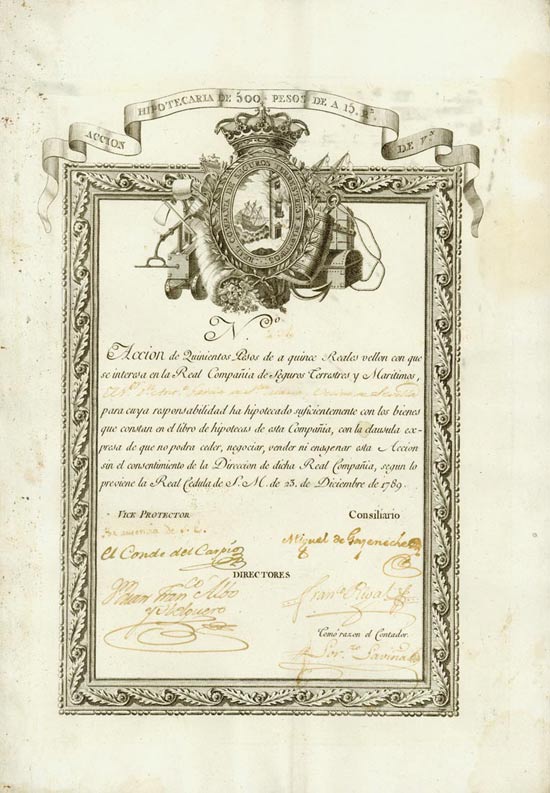 ACCION HIPOTECARIA DE 500. PESOS DE A 15. Rs. DE Vn.
N.o
Accion de Quinientos Pesos de a quince Reales vellon con que
se interesa en la Real Compañia de Seguros Terrestres y Maritimos,
para cuya responsabilidad ha hipotecado suficientemente con los bienes
que constan en el libro de hipotecas de esta Compañia, con la clausula ex-
presa de que no podra ceder, negociar, vender ni enagenar esta Accion
sin el consentimiento de la Direccion de dicha Real Compañia, segun lo
previene la Real Cedula de S. M. de 23. de Diciembre de 1789.
VICE PROTECTOR
Consiliario
El Conde del Carpio
Miguel de Goyeneche
DIRECTORES
Juan Franco. Albo
y Helguero
Franco. Ribas
Tomè razon el Contador.